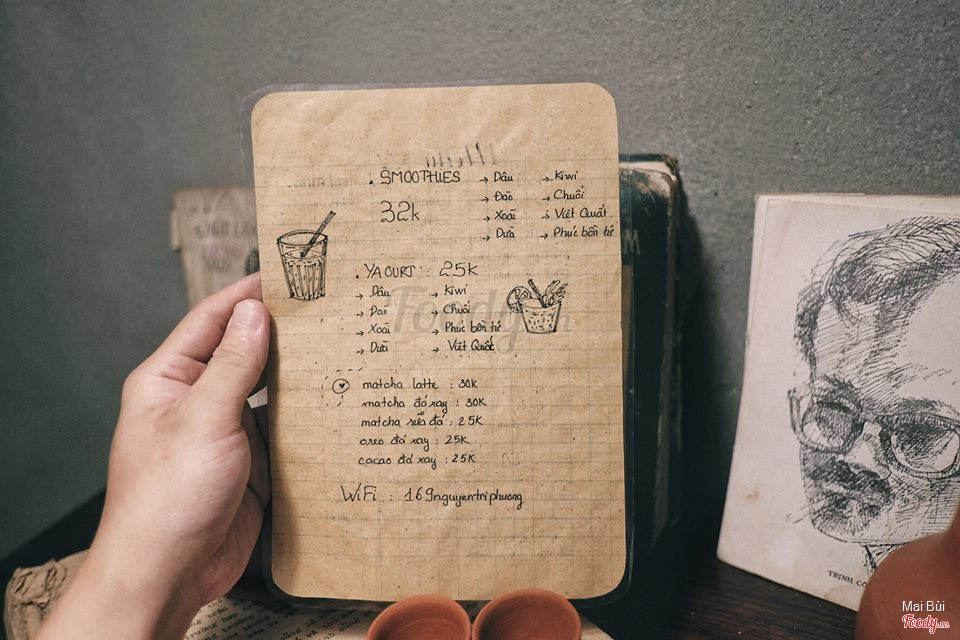 Menu
. SMOOTHIES → Dâu → Kiwi
→ Đào → Chuối
32k → Xoài → Việt Quất
→ Dừa → Phúc bồn tử
. YAOURT : 25K
→ Dâu → Kiwi
→ Đào → Chuối
→ Xoài → Phúc bồn tử
→ Dừa → Việt Quất
matcha latte : 30K
matcha đá xay : 30K
matcha sữa đá : 25K
oreo đá xay : 25K
cacao đá xay : 25K
WiFi : 169nguyentriphuong
Foody.vn
TRỊNH CÔ
Mai Bùi
Foody.vn